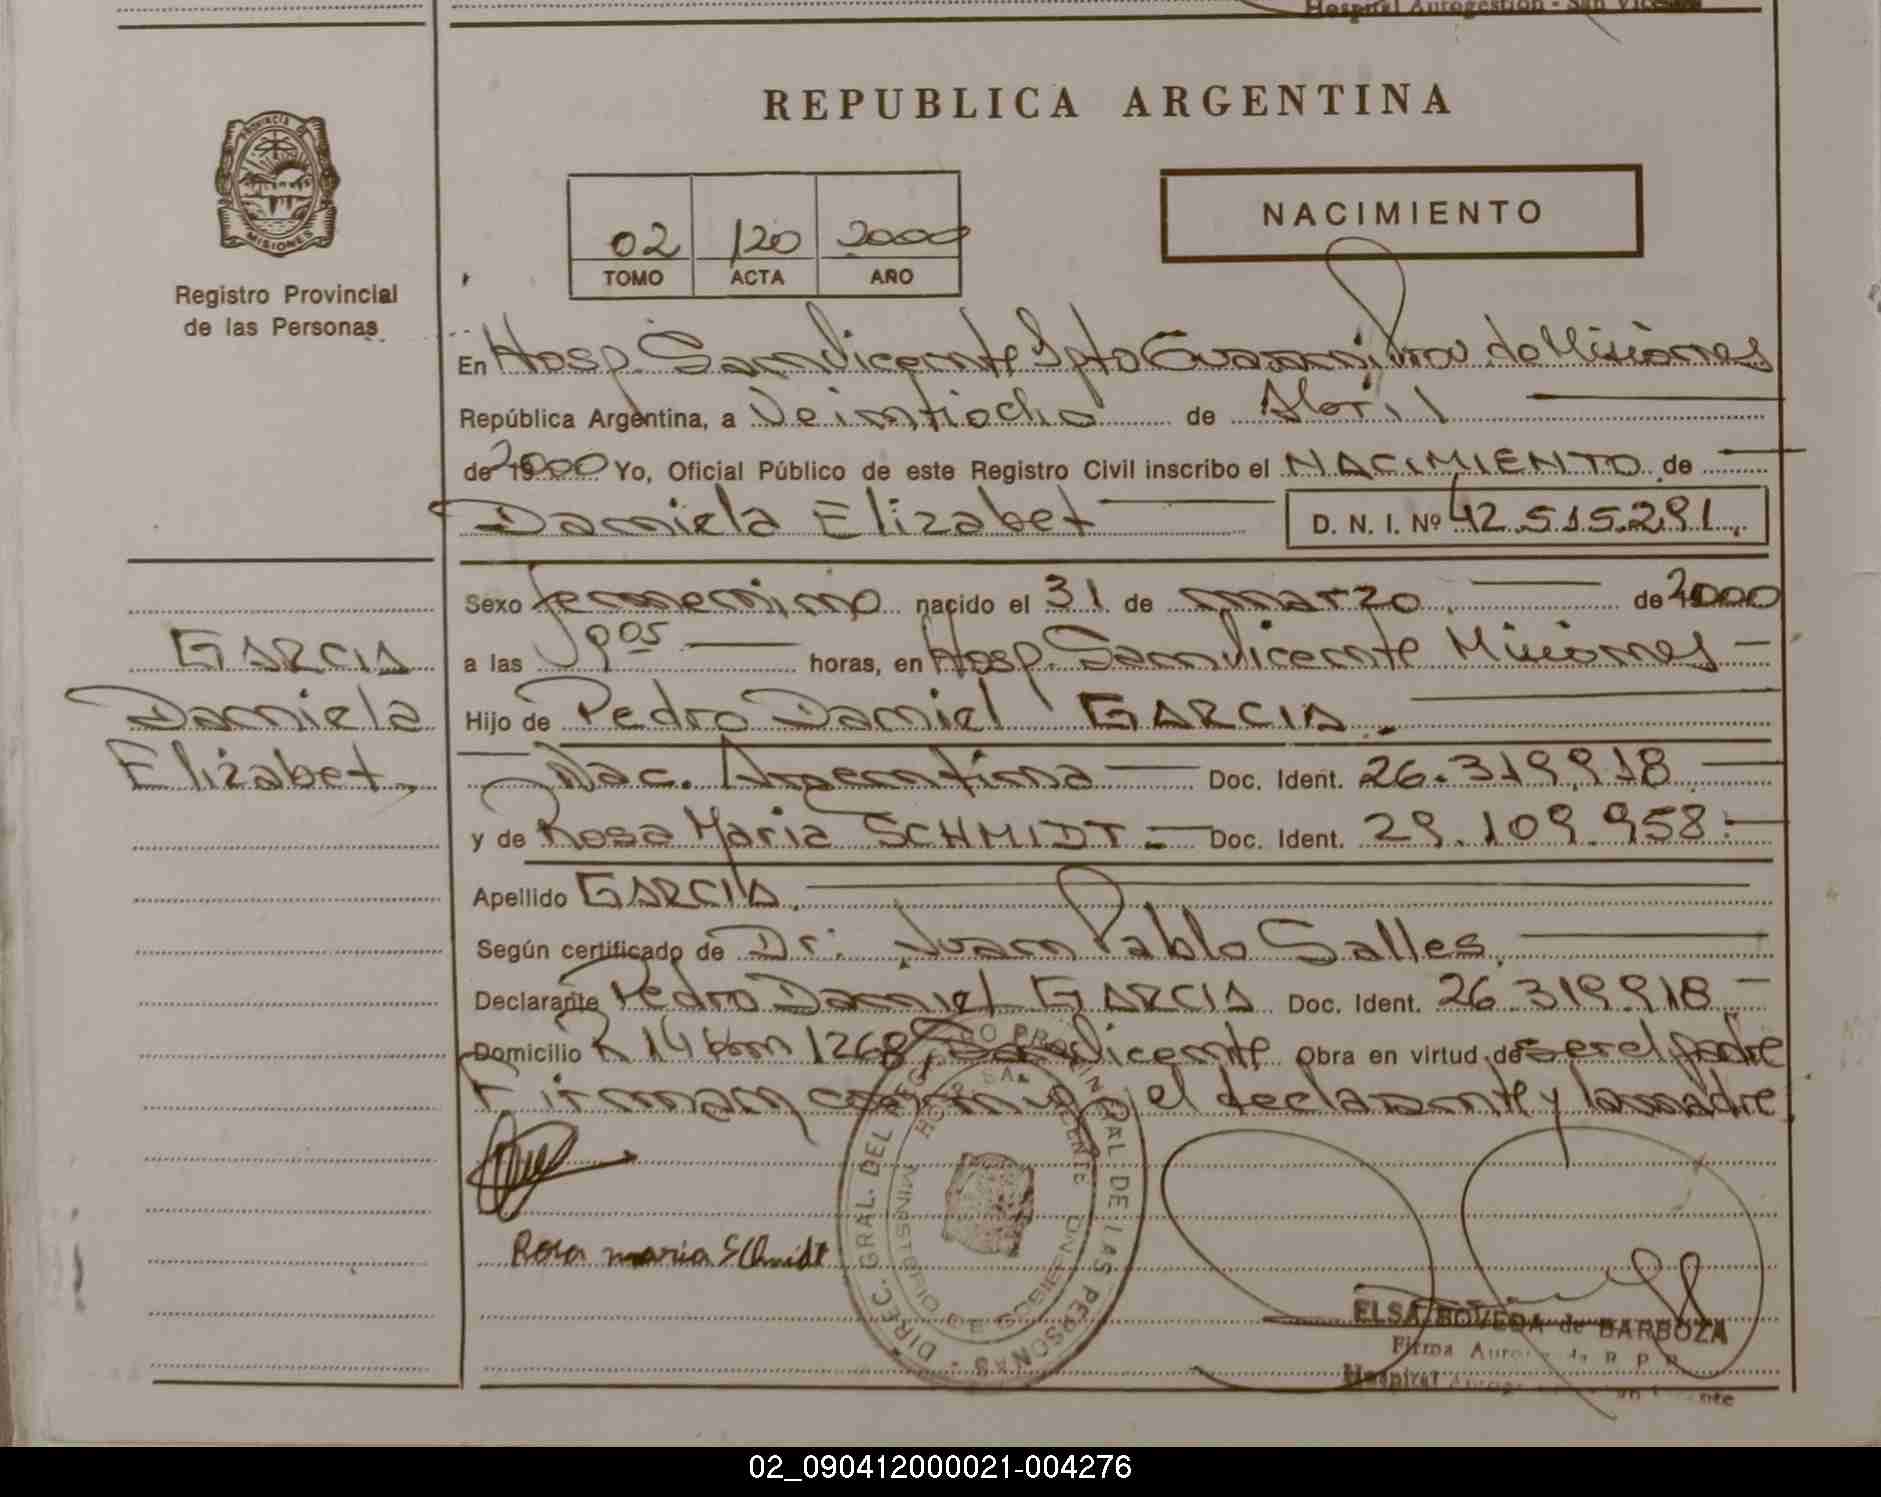 Hospital Autogestión - San Vicente
REPUBLICA ARGENTINA
PROVINCIA DE
MISIONES
Registro Provincial
de las Personas
02 120 2000
TOMO ACTA AÑO
NACIMIENTO
En Hosp. San Vicente Dpto Guaraní, Prov. de Misiones
República Argentina, a Veintiocho de Abril
de 2000 Yo, Oficial Público de este Registro Civil inscribo el NACIMIENTO de
Daniela Elizabet D. N. I. Nº 42.515.291
Sexo femenino nacido el 31 de marzo de 2000
a las 9:05 horas, en Hosp. San Vicente Misiones
GARCIA
Daniela
Elizabet
Hijo de Pedro Daniel GARCIA
Nac. Argentina Doc. Ident. 26.319.918
y de Rosa Maria SCHMIDT Doc. Ident. 29.109.958
Apellido GARCIA
Según certificado de Dr. Juan Pablo Salles
Declarante Pedro Daniel GARCIA Doc. Ident. 26.319.918
Domicilio R 14 km 1268, San Vicente Obra en virtud de ser el padre
Firman conmigo el declarante y la madre
Rosa maria SChmidt
DIREC. GRAL. DEL REGISTRO PROVINCIAL DE LAS PERSONAS
HOSP. SAN VICENTE
MINISTERIO DE GOBIERNO
ELSA BOVEDA de BARBOZA
Firma R. P. P.
Hospital
02_090412000021-004276